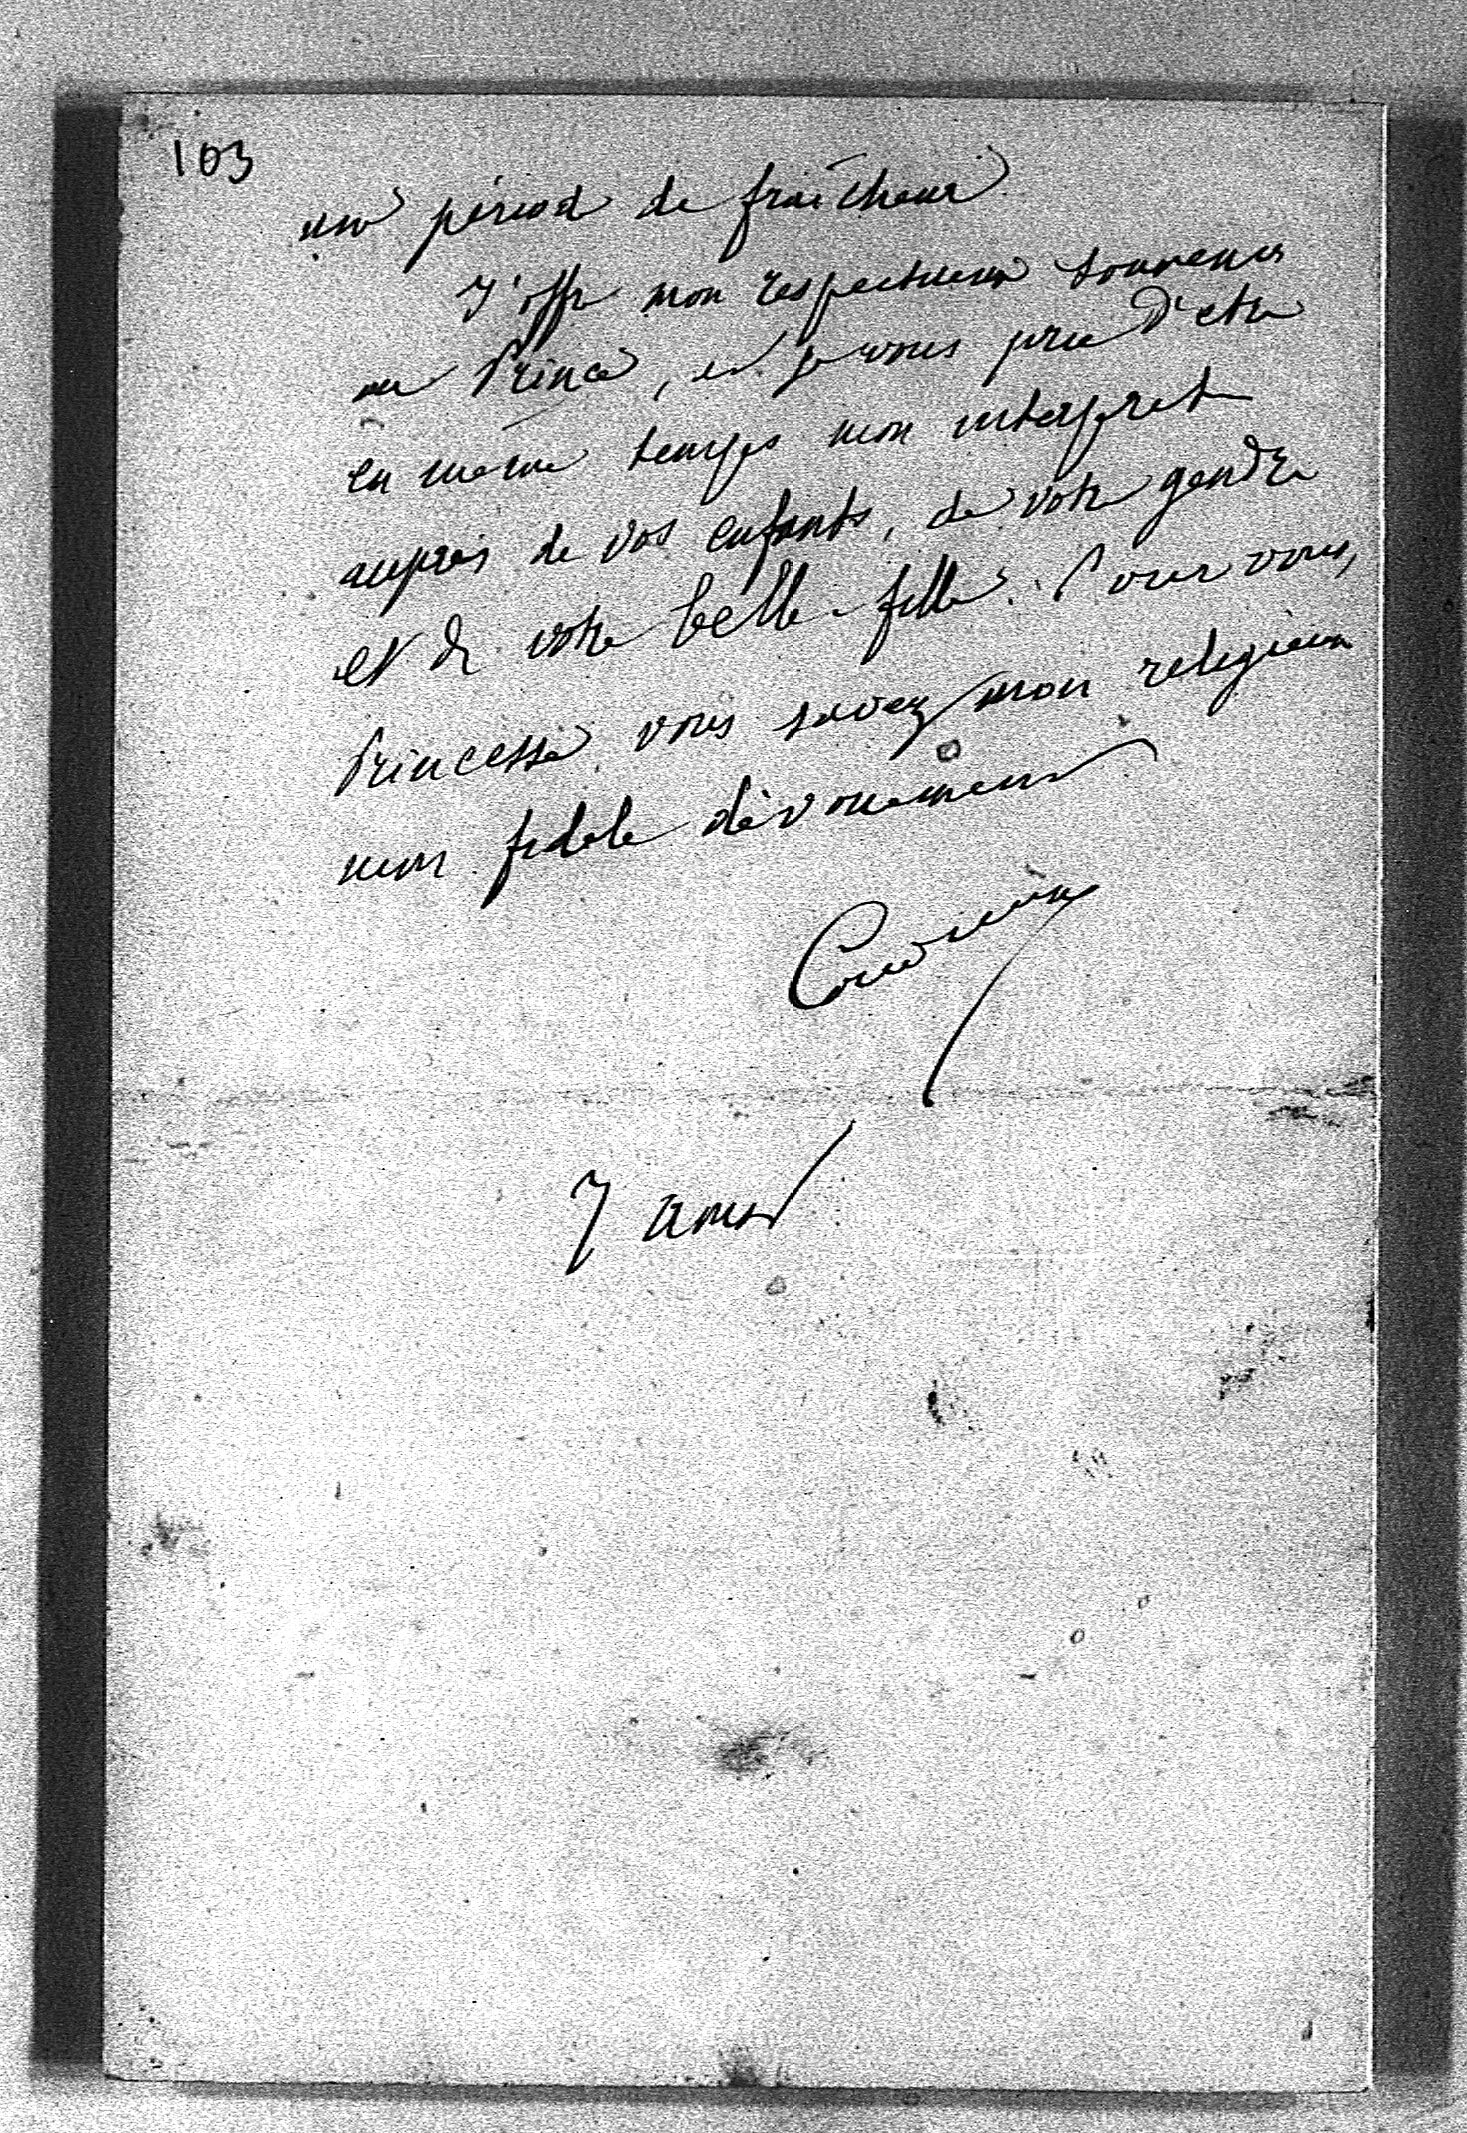 103
une périod de fraîcheur
J'offre mon respectueux souvenir
au Prince, et je vous prie d'être
en même temps mon interprete
auprès de vos enfants, de votre gendre
et de votre belle-fille. Pour vous,
Princesse, vous savez mon religieux
mon fidele dévouement
7 aout